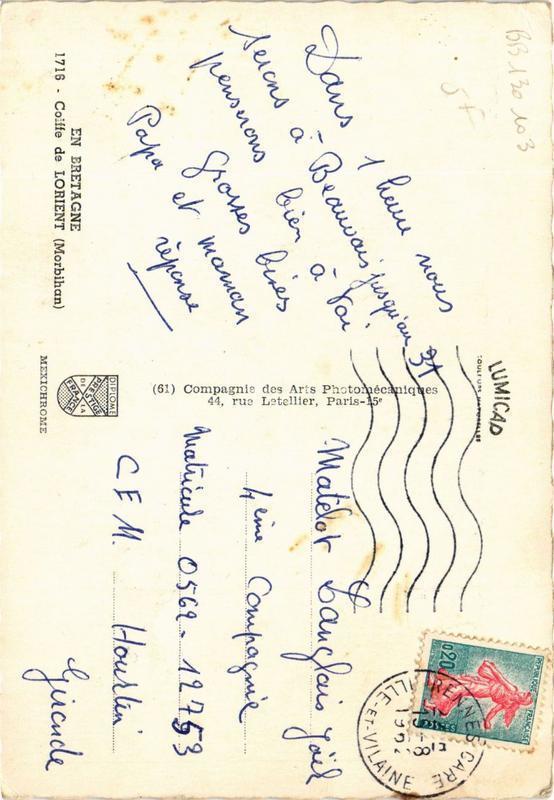 EN BRETAGNE
1716 - Coiffe de LORIENT (Morbihan)
Dans 1 heure nous
serons à Beauvais jusqu'au 31
penserons bien à toi
Grosses bises
Papa et maman
réponse
MEXICHROME
ÉDITIONS
DE PRESTIGE
DE LA
FRANCE
(61) Compagnie des Arts Photomécaniques
44, rue Letellier, Paris-15e
LUMICAP
COULEURS NATURELLES
BB 130 103
5F
Matelot Langlais Joël
4ème Compagnie
Matricule 0562-12753
C F M. Hourtin
Gironde
RENNES GARE
ILLE-ET-VILAINE
REPUBLIQUE FRANÇAISE
0,20